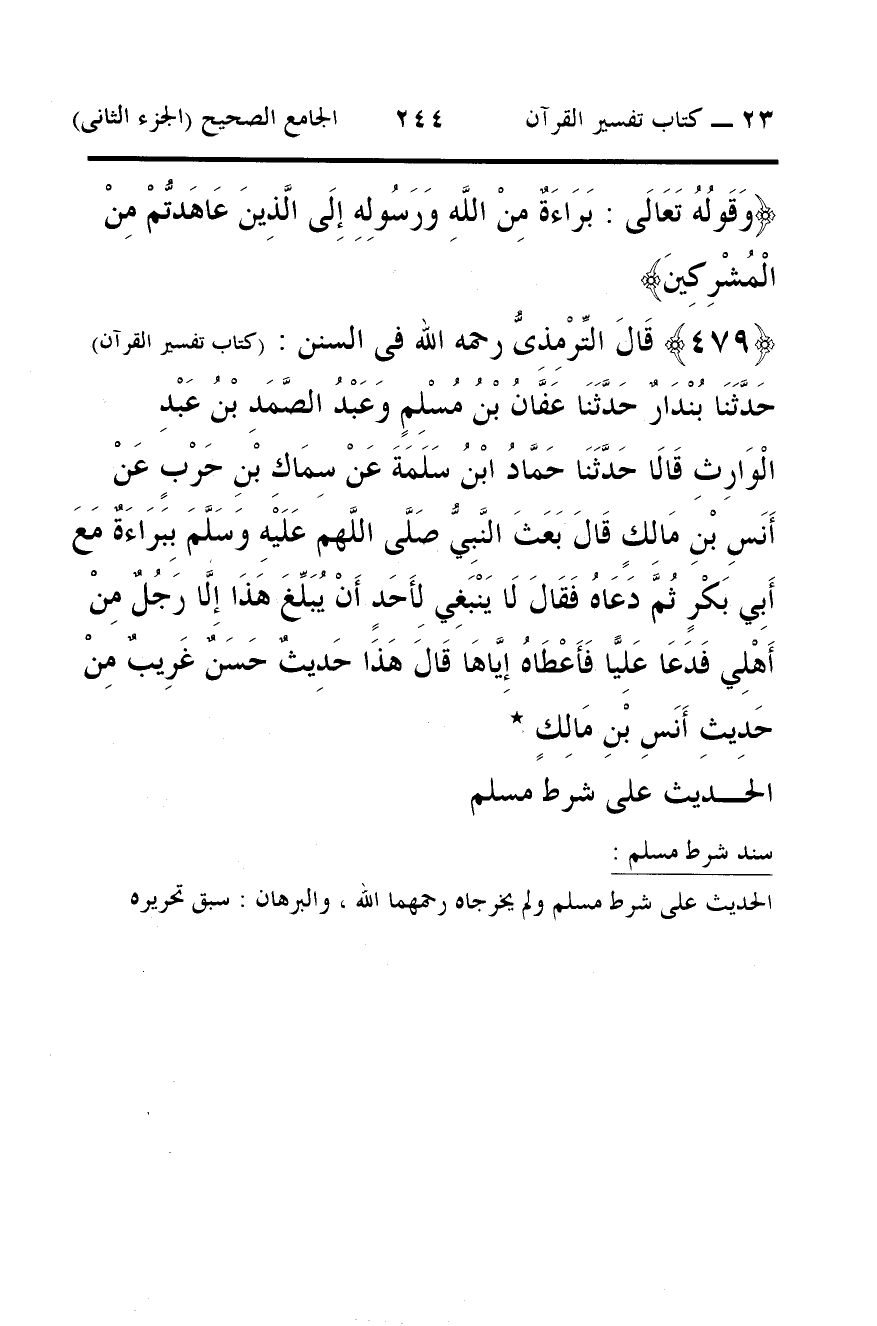 ٢٣ ـ كتاب تفسير القرآن ٢٤٤ الجامع الصحيح (الجزء الثانى)
﴿وَقَولُهُ تَعَالَى : بَرَاءَةٌ مِنْ اللَّهِ وَرَسُولِهِ إِلَى الَّذِينَ عَاهَدتُّمْ مِنْ
الْمُشْرِكِينَ﴾
﴿٤٧٩﴾ قَالَ التِّرْمِذىُّ رحمه الله فى السنن : (كتاب تفسير القرآن)
حَدَّثَنَا بُنْدَارٌ حَدَّثَنَا عَفَّانُ بْنُ مُسْلِمٍ وَعَبْدُ الصَّمَدِ بْنُ عَبْدِ
الْوَارِثِ قَالَا حَدَّثَنَا حَمَّادُ ابْنُ سَلَمَةَ عَنْ سِمَاكِ بْنِ حَرْبٍ عَنْ
أَنَسِ بْنِ مَالِكٍ قَالَ بَعَثَ النَّبِيُّ صَلَّى اللَّهم عَلَيْهِ وَسَلَّمَ بِبَرَاءَةٌ مَعَ
أَبِي بَكْرٍ ثُمَّ دَعَاهُ فَقَالَ لَا يَنْبَغِي لِأَحَدٍ أَنْ يُبَلِّغَ هَذَا إِلَّا رَجُلٌ مِنْ
أَهْلِي فَدَعَا عَلِيًّا فَأَعْطَاهُ إِيَّاهَا قَالَ هَذَا حَدِيثٌ حَسَنٌ غَرِيبٌ مِنْ
حَدِيثِ أَنَسِ بْنِ مَالِكٍ *
الحـــديث على شرط مسلم
سند شرط مسلم :
الحديث على شرط مسلم ولم يخرجاه رحمهما الله ، والبرهان : سبق تحريره